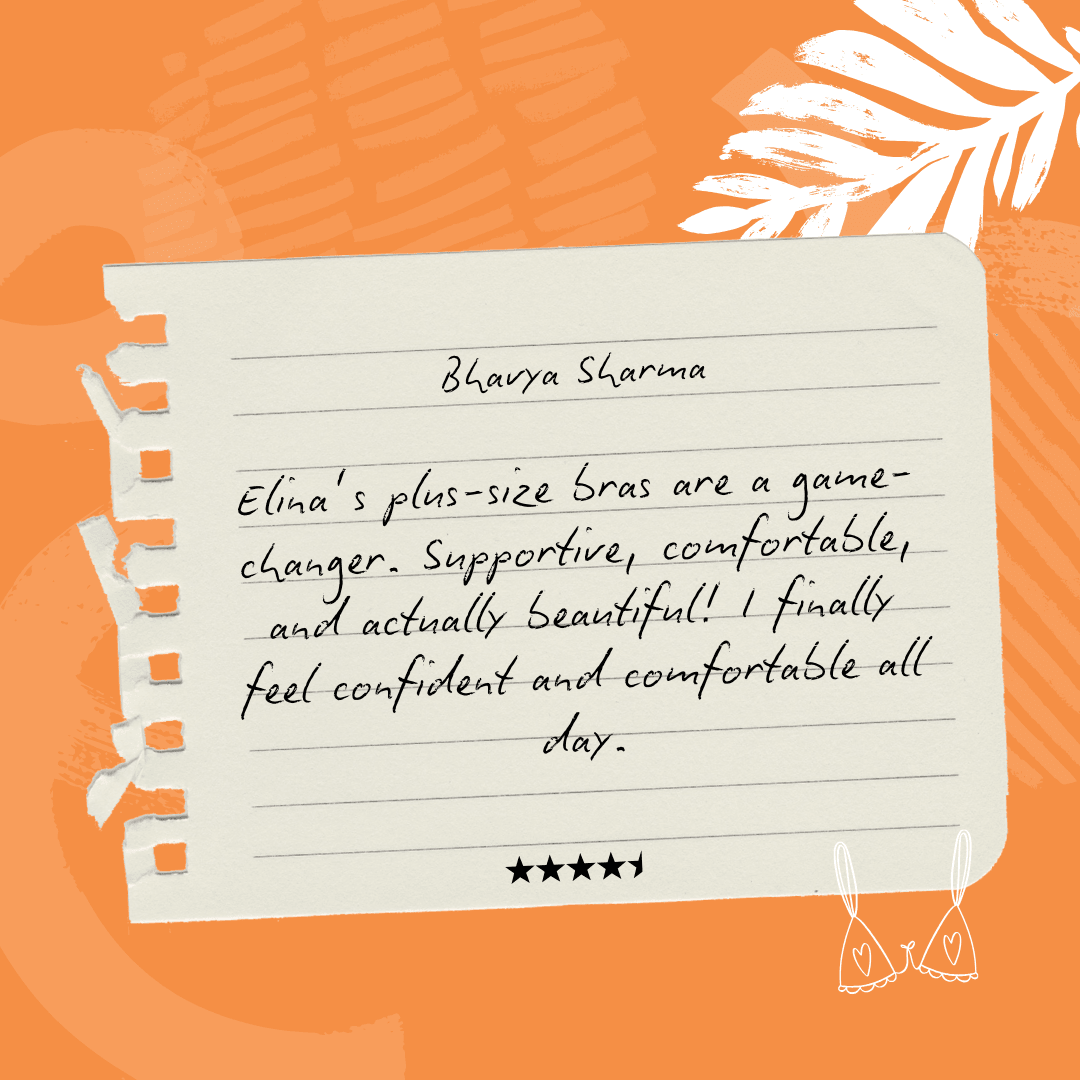 Bhavya Sharma
Elina's plus-size bras are a game-
changer. Supportive, comfortable,
and actually beautiful! I finally
feel confident and comfortable all
day.